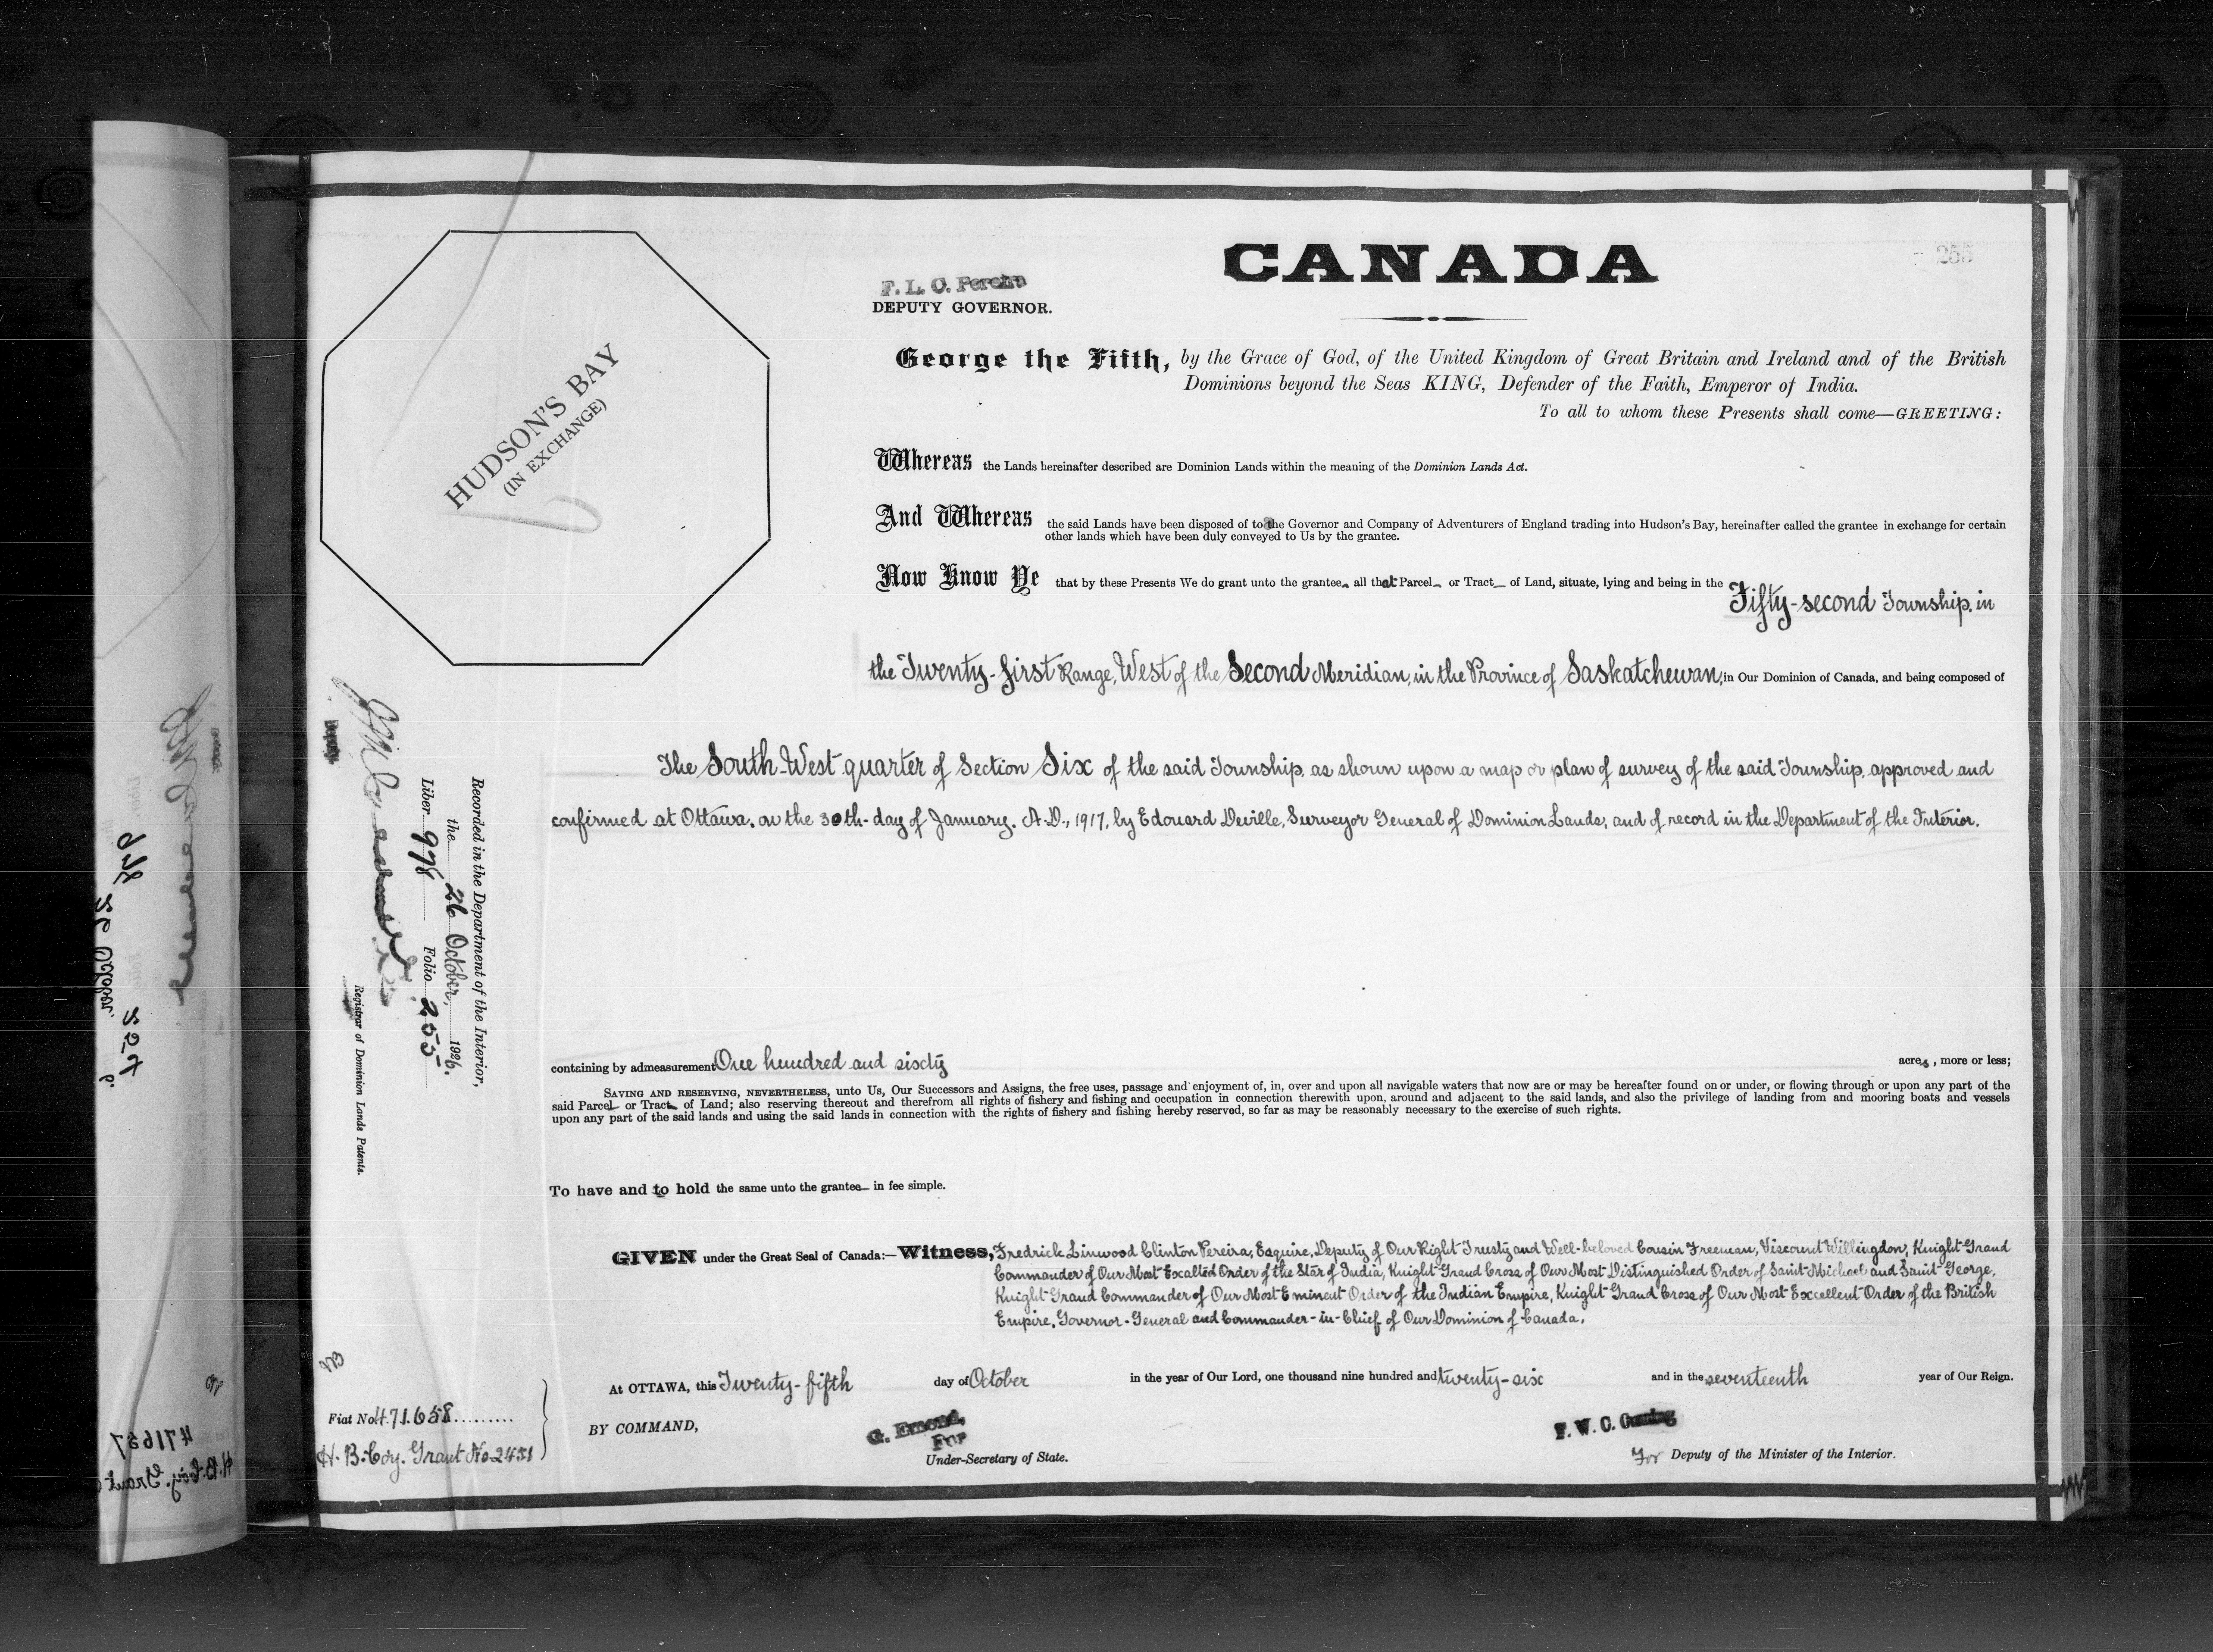 CANADA
F. L. C. Pereira
DEPUTY GOVERNOR.
HUDSON'S BAY
(IN EXCHANGE)
George the Fifth, by the Grace of God, of the United Kingdom of Great Britain and Ireland and of the British
Dominions beyond the Seas KING, Defender of the Faith, Emperor of India.
To all to whom these Presents shall come—GREETING:
Whereas the Lands hereinafter described are Dominion Lands within the meaning of the Dominion Lands Act.
And Whereas the said Lands have been disposed of to the Governor and Company of Adventurers of England trading into Hudson's Bay, hereinafter called the grantee in exchange for certain
other lands which have been duly conveyed to Us by the grantee.
Now Know Ye that by these Presents We do grant unto the grantee, all that Parcel or Tract of Land, situate, lying and being in the Fifty-second Township, in
the Twenty-first Range, West of the Second Meridian, in the Province of Saskatchewan, in Our Dominion of Canada, and being composed of
The South-West quarter of Section Six of the said Township, as shown upon a map or plan of survey of the said Township, approved and
confirmed at Ottawa, on the 30th day of January, A.D., 1917, by Edouard Deville, Surveyor General of Dominion Lands, and of record in the Department of the Interior.
Recorded in the Department of the Interior,
the 26 October, 1926.
Liber 978 Folio 255
Deputy
Registrar of Dominion Lands Patents.
containing by admeasurement One hundred and sixty acres, more or less;
SAVING AND RESERVING, NEVERTHELESS, unto Us, Our Successors and Assigns, the free uses, passage and enjoyment of, in, over and upon all navigable waters that now are or may be hereafter found on or under, or flowing through or upon any part of the
said Parcel or Tract of Land; also reserving thereout and therefrom all rights of fishery and fishing and occupation in connection therewith upon, around and adjacent to the said lands, and also the privilege of landing from and mooring boats and vessels
upon any part of the said lands and using the said lands in connection with the rights of fishery and fishing hereby reserved, so far as may be reasonably necessary to the exercise of such rights.
To have and to hold the same unto the grantee in fee simple.
GIVEN under the Great Seal of Canada:—Witness, Fredrick Linwood Clinton Pereira, Esquire, Deputy of Our Right Trusty and Well-beloved Cousin Freeman, Viscount Willingdon, Knight Grand
Commander of Our Most Exalted Order of the Star of India, Knight Grand Cross of Our Most Distinguished Order of Saint Michael and Saint George,
Knight Grand Commander of Our Most Eminent Order of the Indian Empire, Knight Grand Cross of Our Most Excellent Order of the British
Empire, Governor-General and Commander-in-Chief of Our Dominion of Canada.
At OTTAWA, this Twenty-fifth day of October in the year of Our Lord, one thousand nine hundred and twenty-six and in the seventeenth year of Our Reign.
Fiat No 471658
H. B. Coy. Grant No 2451
BY COMMAND,
G. Emond,
For
Under-Secretary of State.
F. W. C. Cumming
For Deputy of the Minister of the Interior.